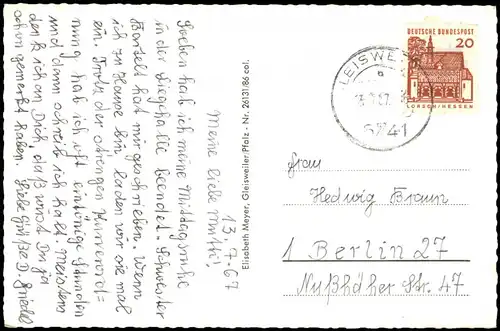 13.7.67
Meine liebe Mutti!
Soeben hab ich meine Mittagsruhe
in der Liegehalle beendet. Schwester
Bartelt hat mir geschrieben. Wenn
ich zu Hause bin laden wir sie mal
ein. Trotz der strengen Kurverord-
nung hab ich oft einsame Stunden
und dann schreib ich halt. Meistens
denk ich an Dich, das wirst Du ja
schon gemerkt haben. Liebe Grüße D.
Elisabeth Meyer, Gleisweiler/Pfalz - Nr. 26131/86 col.
DEUTSCHE BUNDESPOST
20
LORSCH/HESSEN
6741
Frau
Hedwig Braun
1 Berlin 27
Nußhäher Str. 47